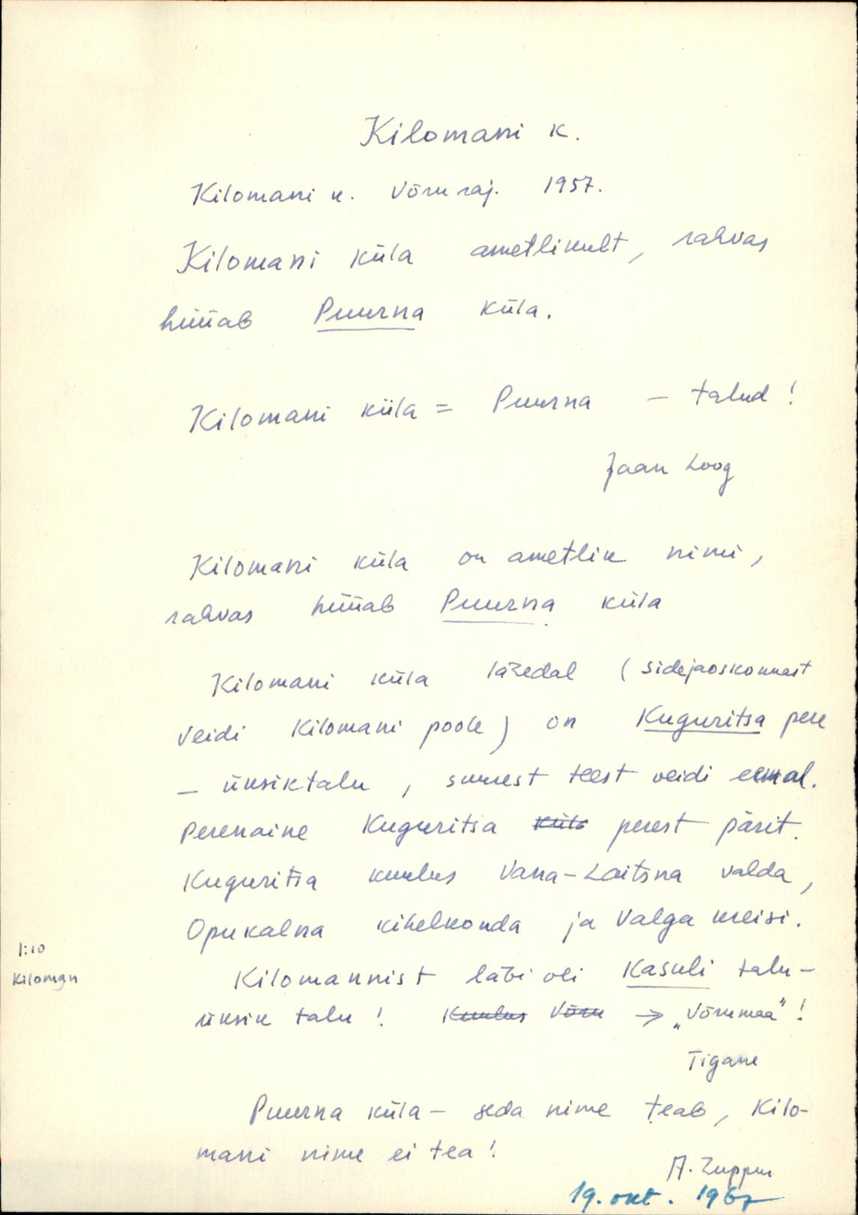 Kilomani k.
Kilomani k. Võru raj. 1957.
Kilomani küla ametlikult, rahvas
hüüab Puurna küla.
Kilomani küla = Puurna - talud!
Jaan Loog
Kilomani küla on ametlik nimi,
rahvas hüüab Puurna küla
Kilomani küla lähedal (sidejaoskonnast
veidi Kilomani poole) on Kuguritsa pere
- üksiktalu, suurest teest veidi eemal.
Perenaine Kuguritsa küla perest pärit.
Kuguritsa kuulus Vana-Laitsna valda,
Opukalna kihelkonda ja Valga kreisi.
1:10
Kiloman
Kilomannist läbi oli Kasuli talu-
üksik talu! Kuulus Võru → „Võrumaa"!
Tigane
Puurna küla - seda nime teab, Kilo-
mani nime ei tea!
A. Zuppur
19. okt. 1967